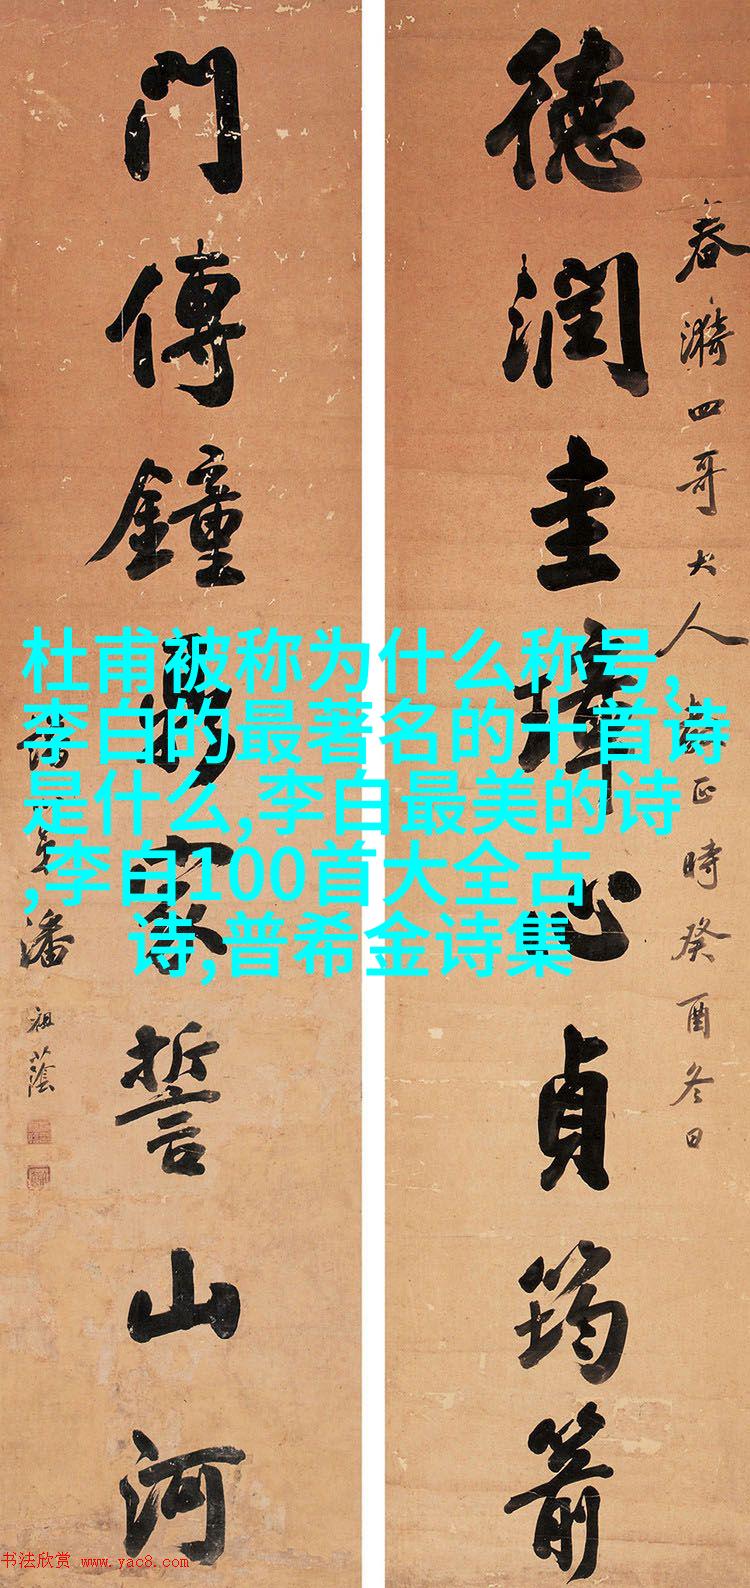 德潤圭璋心貞筠箭
春漪四哥大人 正時癸酉冬日
門傳鐘鼎家誓山河
潘祖蔭
杜甫被称为什么称号,
李白的最著名的十首诗
是什么,李白最美的诗
,李白100首大全古
诗,普希金诗集
书法欣赏 www.yac8.com